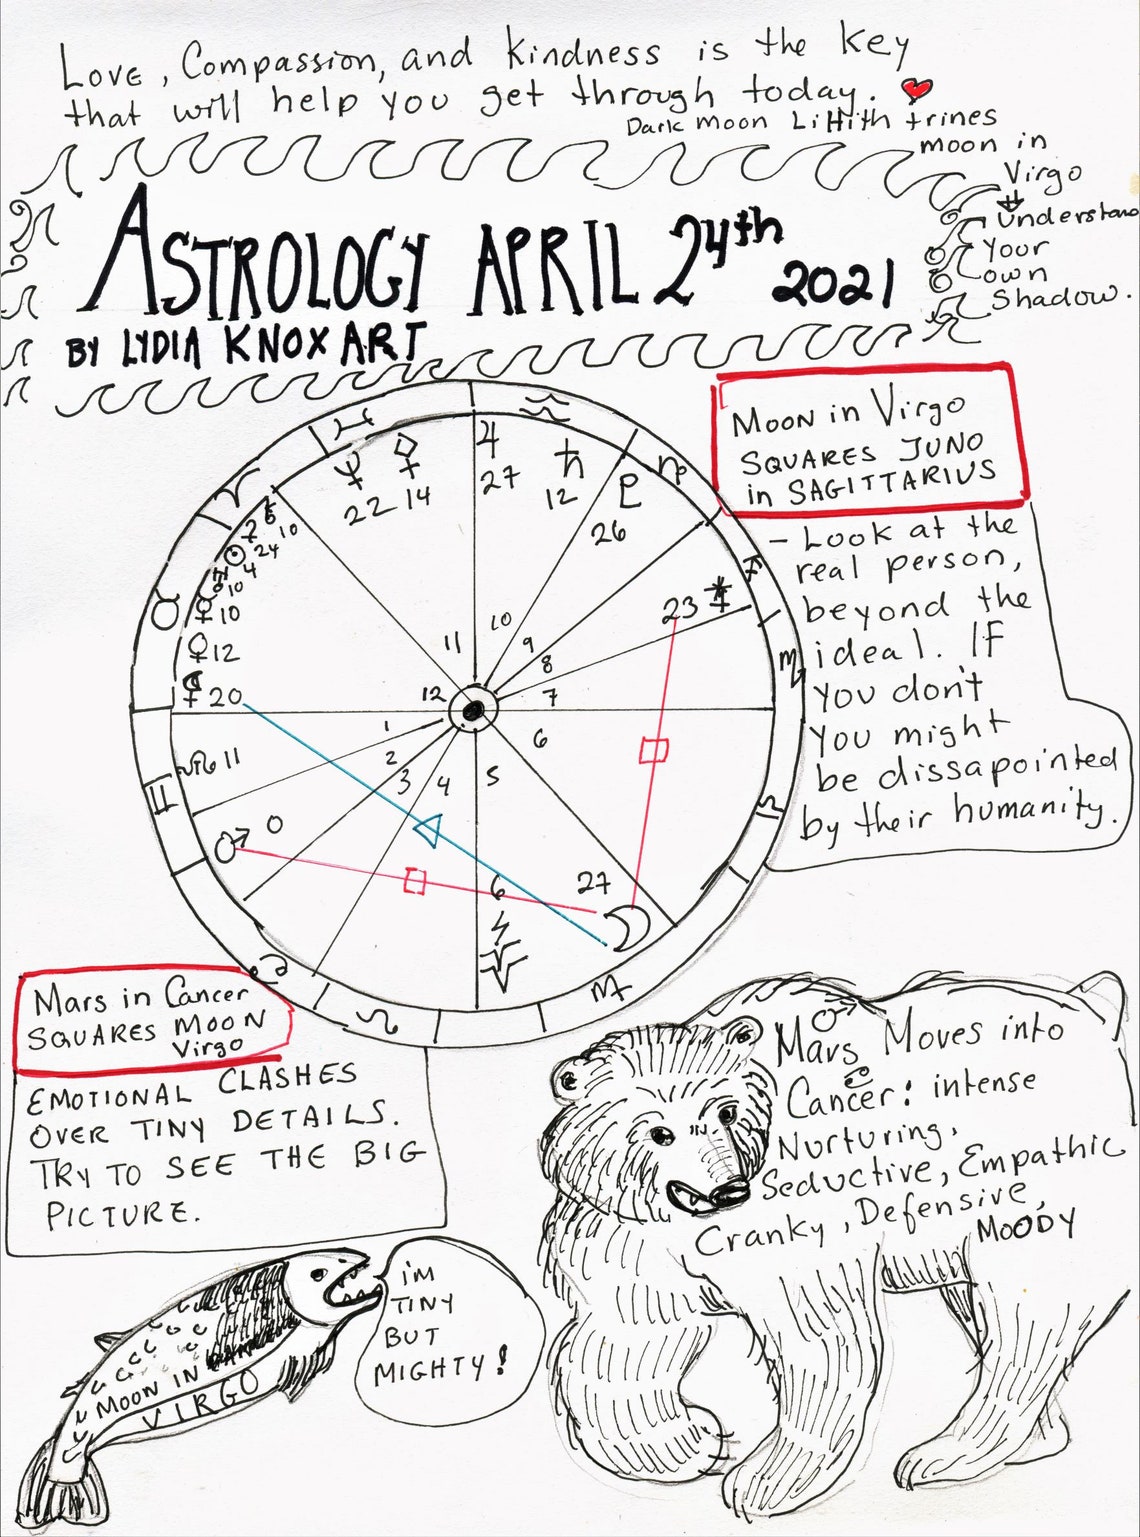 Love, Compassion, and Kindness is the key
that will help you get through today.
Dark Moon Lillith trines
moon in
Virgo
Understand
Your
own
Shadow.
ASTROLOGY APRIL 24th 2021
BY LYDIA KNOX ART
MOON in Virgo
SQUARES JUNO
in SAGITTARIUS
- Look at the
real person,
beyond the
ideal. IF
you don't
you might
be dissapointed
by their humanity.
♃ 27
♄ 12
♇ 26
22 14
10
24
4
10
10
♀ 12
20
☊ 11
♂ 0
23
27
6
1
2
3
4
5
6
7
8
9
10
11
12
Mars in Cancer
SQUARES MOON
Virgo
EMOTIONAL CLASHES
OVER TINY DETAILS.
TRY TO SEE THE BIG
PICTURE.
♂
Mars Moves into
♋
Cancer: intense
Nurturing,
Seductive, Empathic
Cranky, Defensive,
MOODY
i'M
TINY
BUT
MIGHTY!
MOON IN
VIRGO